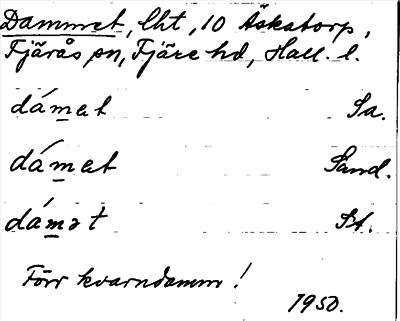 Dammet, lht, 10 Äskatorp,
Fjärås sn, Fjäre hd, Hall. l.
dámat Sa.
dámat Sand.
dámət St.
Förr kvarndamm!
1950.